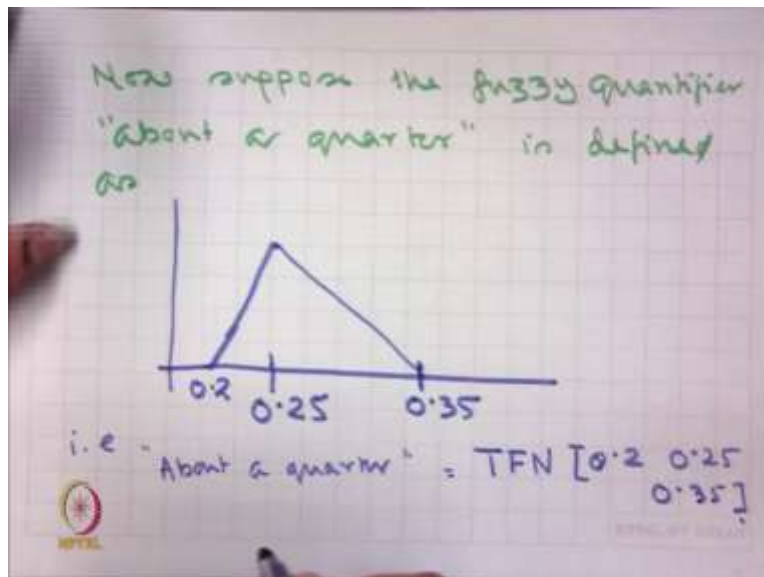 Now suppose the fuzzy quantifier
"about a quarter" is defined
as
0.2
0.25
0.35
i.e "About a quarter" = TFN [0.2 0.25
0.35]
NPTEL